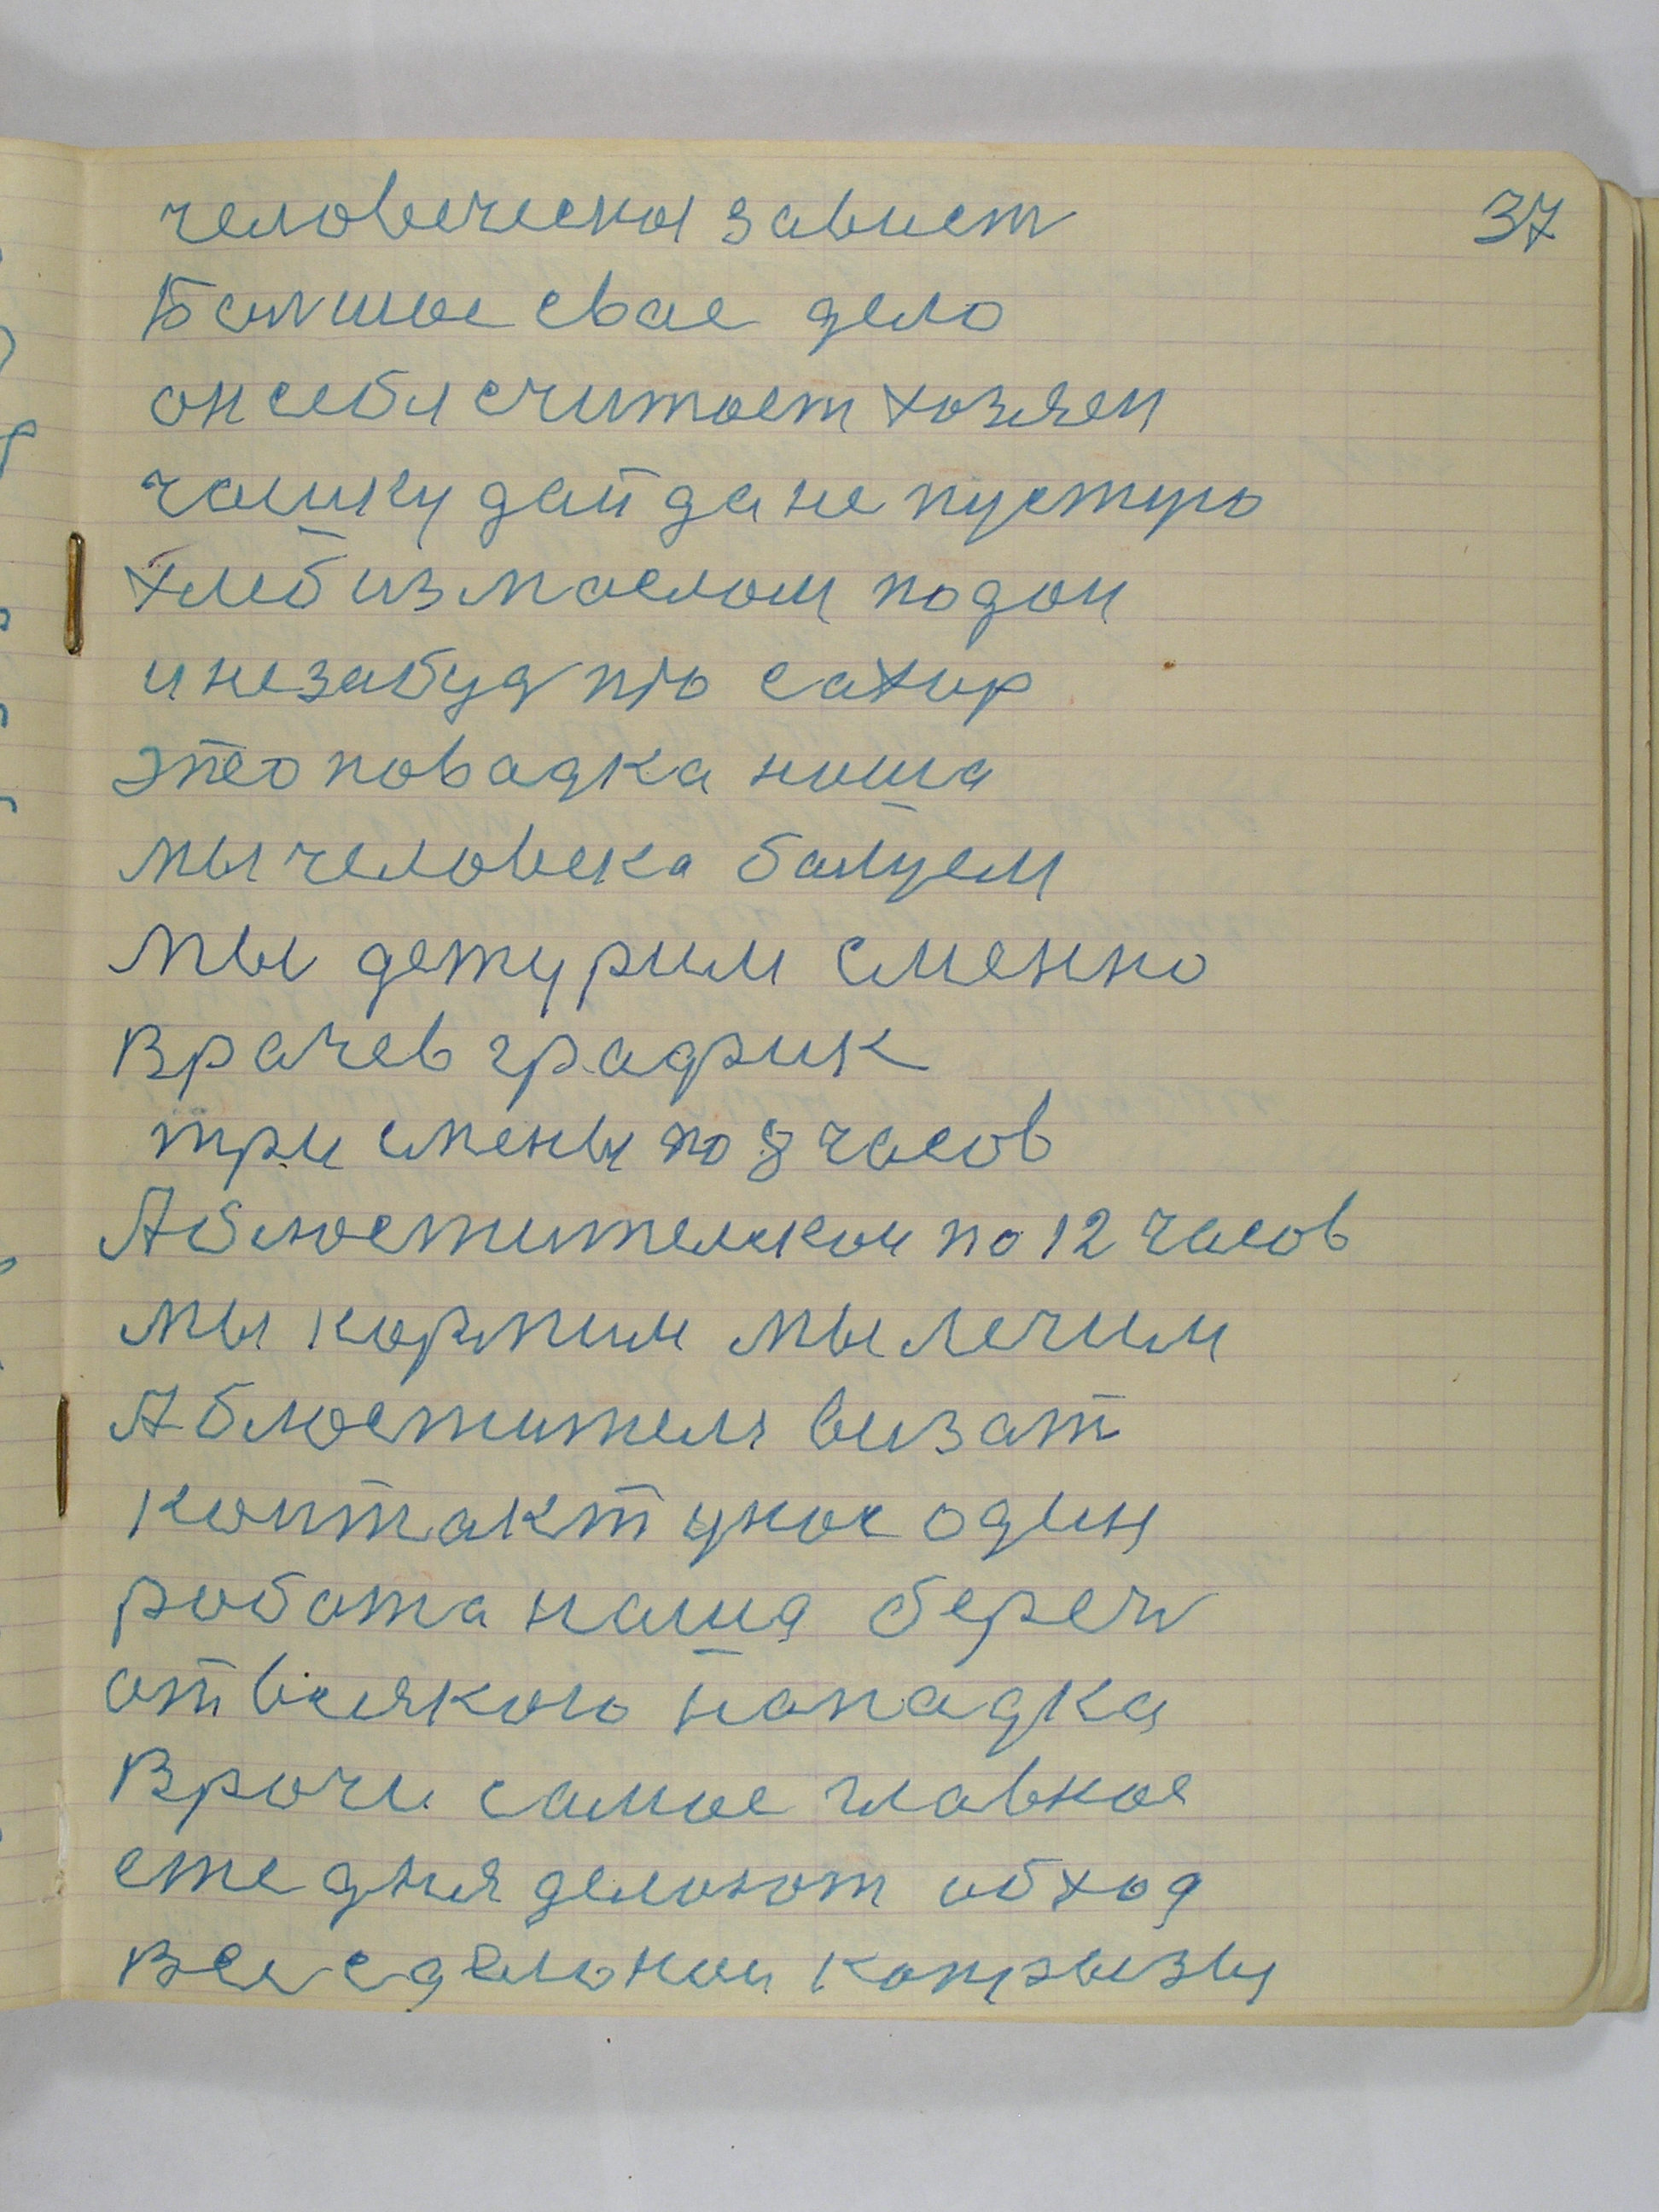 37
человеческая завист
Болшое свае дело
он себя считает хозяен
чашку дай да не пустую
хлеб из маслом подай
и не забуд про сахир
это повадка наша
мы человека балуем
мы дежурим сменно
врачев график
три смены по 8 часов
Аблюстителской по 12 часов
мы кормим мы лечим
Аблюстителя визат
контакт у нас один
работа наша береч
от всякого нападка
Врачи самое главное
еже дня делают обход
все сделоной капрызы